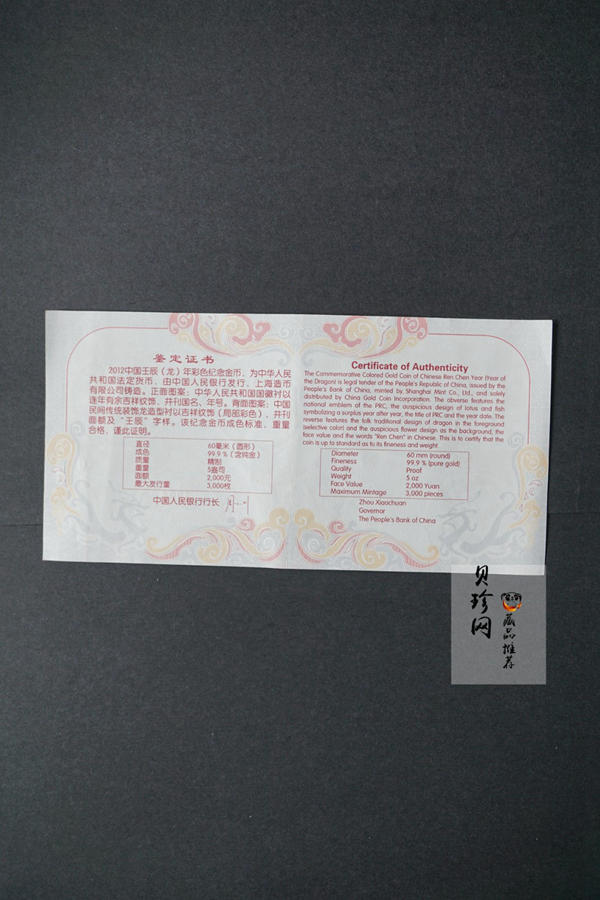 鉴定证书
2012中国壬辰（龙）年彩色纪念金币，为中华人民
共和国法定货币，由中国人民银行发行，上海造币
有限公司铸造。正面图案：中华人民共和国国徽衬以
连年有余吉祥纹饰，并刊国名、年号。背面图案：中国
民间传统装饰龙造型衬以吉祥纹饰（局部彩色），并刊
面额及“壬辰”字样。该纪念金币成色标准，重量
合格，谨此证明。
直径 60毫米（圆形）
成色 99.9％（含纯金）
质量 精制
重量 5盎司
面额 2,000元
最大发行量 3,000枚
中国人民银行行长
Certificate of Authenticity
The Commemorative Colored Gold Coin of Chinese Ren Chen Year (Year of
the Dragon) is legal tender of the People's Republic of China, issued by the
People's Bank of China, minted by Shanghai Mint Co., Ltd., and solely
distributed by China Gold Coin Incorporation. The obverse features the
national emblem of the PRC, the auspicious design of lotus and fish
symbolizing a surplus year after year, the title of PRC and the year date. The
reverse features the folk traditional design of dragon in the foreground
(selective color) and the auspicious flower design as the background, the
face value and the words "Ren Chen" in Chinese. This is to certify that the
coin is up to standard as to its fineness and weight.
Diameter 60 mm (round)
Fineness 99.9 % (pure gold)
Quality Proof
Weight 5 oz
Face Value 2,000 Yuan
Maximum Mintage 3,000 pieces
Zhou Xiaochuan
Governor
The People's Bank of China
贝珍网
藏品推荐